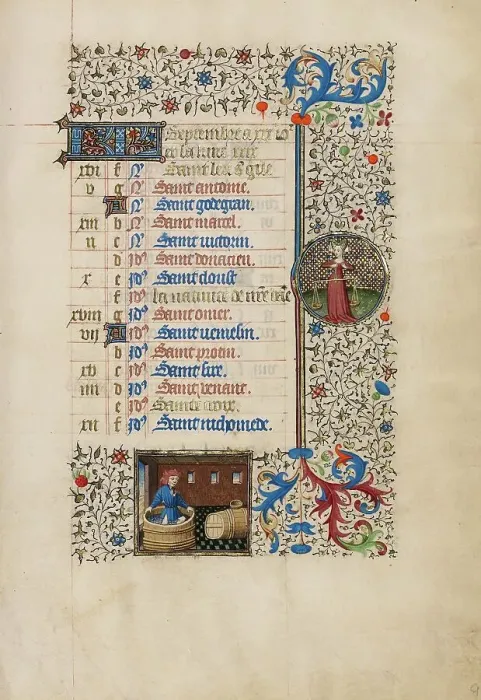 Septembre a xxx io
et la lune xxx
xvi f N Saint leu s gile
v g N Saint antoine.
A N Saint godegran.
xiii b N Saint marcel.
ii c N Saint victorin.
d id Saint donacien.
x e id Saint cloust
f id la nativite de nre
xviii g id Saint omer.
vii A id Saint
b id Saint protin.
xv c id Saint sire.
iiii d id Saint venant.
e id Sainte croix.
xii f id Saint nichomede.